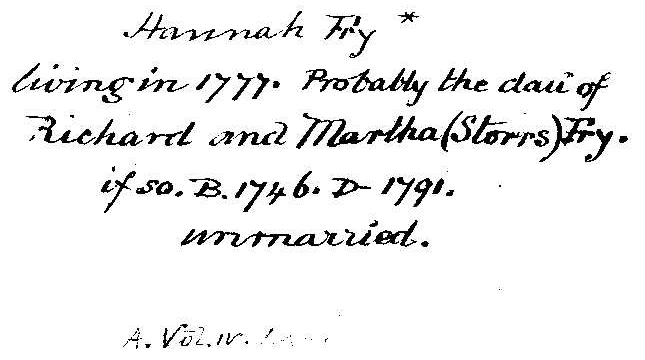 Hannah Fry *
living in 1777. Probably the dau of
Richard and Martha (Storrs) Fry.
if so. B. 1746. D- 1791.
unmarried.
A. Vol. IV.